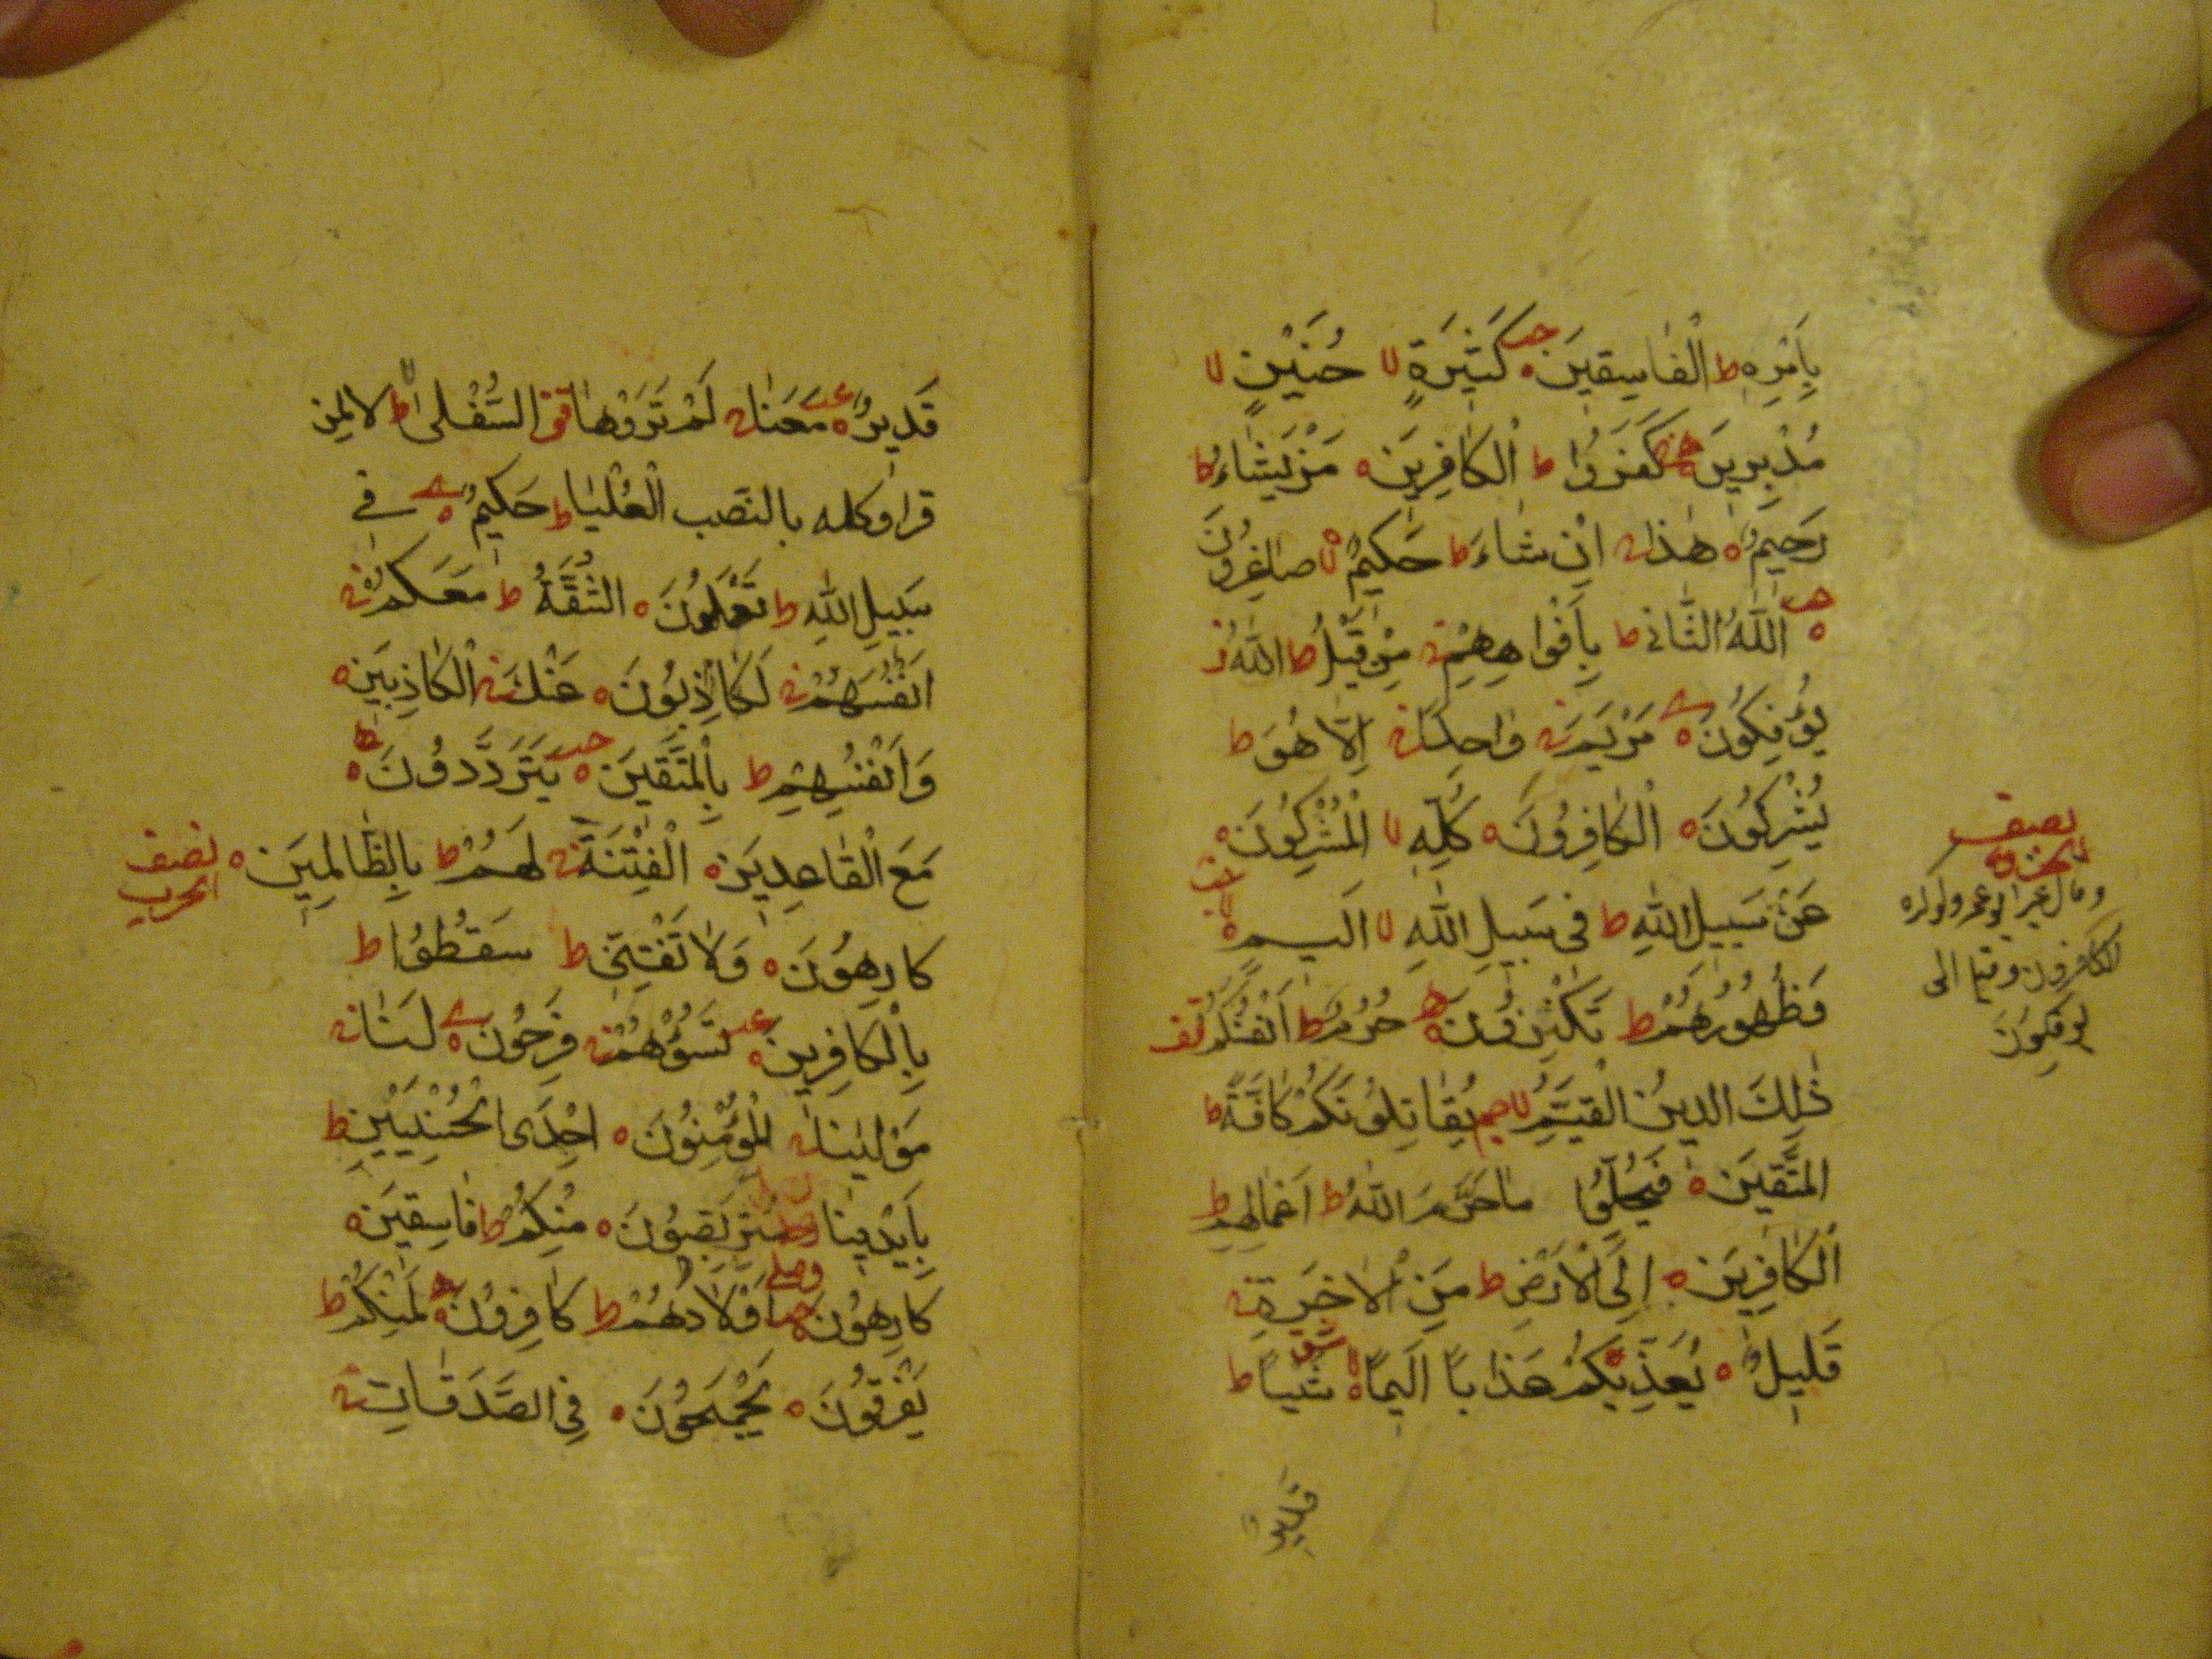 بِاَمْرِهِ ط الْفَاسِقِينَ ه حب كَثِيرَةٍ لا حُنَيْنٍ لا
مُدْبِرِينَ ه كَفَرُوا ط الْكَافِرِينَ ه مَنْ يَشَاءُ ط
رَحِيمٌ ه هٰذَا ج اِنْ شَاءَ ط حَكِيمٌ ه صَاغِرُونَ
ه حب اللّٰهُ الثَّانِى ط بِاَفْوَاهِهِمْ ج مِنْ قَبْلُ ط اللّٰهُ ز
يُؤْفَكُونَ ه مَرْيَمَ ج وَاحِدًا ج اِلَّا هُوَ ط
يُشْرِكُونَ ه الْكَافِرُونَ ه كُلِّهِ لا الْمُشْرِكُونَ ه
عَنْ سَبِيلِ اللّٰهِ ط فِى سَبِيلِ اللّٰهِ لا اَلِيمٍ ه لا
وَظُهُورُهُمْ ط تَكْنِزُونَ ه حُرُمٌ ط اَنْفُسَكُمْ قف
ذٰلِكَ الدِّينُ الْقَيِّمُ لا يُقَاتِلُونَكُمْ كَافَّةً ط
الْمُتَّقِينَ ه فَيُحِلُّوا مَا حَرَّمَ اللّٰهُ ط اَعْمَالِهِمْ ط
الْكَافِرِينَ ه اِلَى الْاَرْضِ ط مِنَ الْاٰخِرَةِ ج
قَلِيلٌ ه يُعَذِّبْكُمْ عَذَابًا اَلِيمًا لا شَيْئًا ط
قَدِيرٌ
نصف
وقال غير ابو عمرو ولو كره
الكافرون وقيما الى
يوفكون
قَدِيرٌ ه عب مَعَنَا ج لَمْ تَرَوْهَا السُّفْلٰى ط لا لمن
قرا وكلمه بالنصب الْعُلْيَا ط حَكِيمٌ ه فِى
سَبِيلِ اللّٰهِ ط تَعْلَمُونَ ه الشُّقَّةُ ط مَعَكُمْ ج
اَنْفُسَهُمْ ج لَكَاذِبُونَ ه عَنْكَ ج الْكَاذِبِينَ ه
وَاَنْفُسِهِمْ ط بِالْمُتَّقِينَ ه حب يَتَرَدَّدُونَ ه
مَعَ الْقَاعِدِينَ ه الْفِتْنَةَ ج لَهُمْ ط بِالظَّالِمِينَ ه
نصف
الحزب
كَارِهُونَ ه وَلَا تَفْتِنِّى ط سَقَطُوا ط
بِالْكَافِرِينَ ه عب تَسُؤْهُمْ ج فَرِحُونَ ه لَنَا ج
مَوْلٰينَا ج الْمُؤْمِنُونَ ه اِحْدَى الْحُسْنَيَيْنِ ط
بِاَيْدِينَا مُتَرَبِّصُونَ ه مِنْكُمْ ط فَاسِقِينَ ه
كَارِهُونَ ه اَوْلَادُهُمْ ط كَافِرُونَ ه لَمِنْكُمْ ط
يَفْرَقُونَ ه يَجْمَحُونَ ه فِى الصَّدَقَاتِ ج